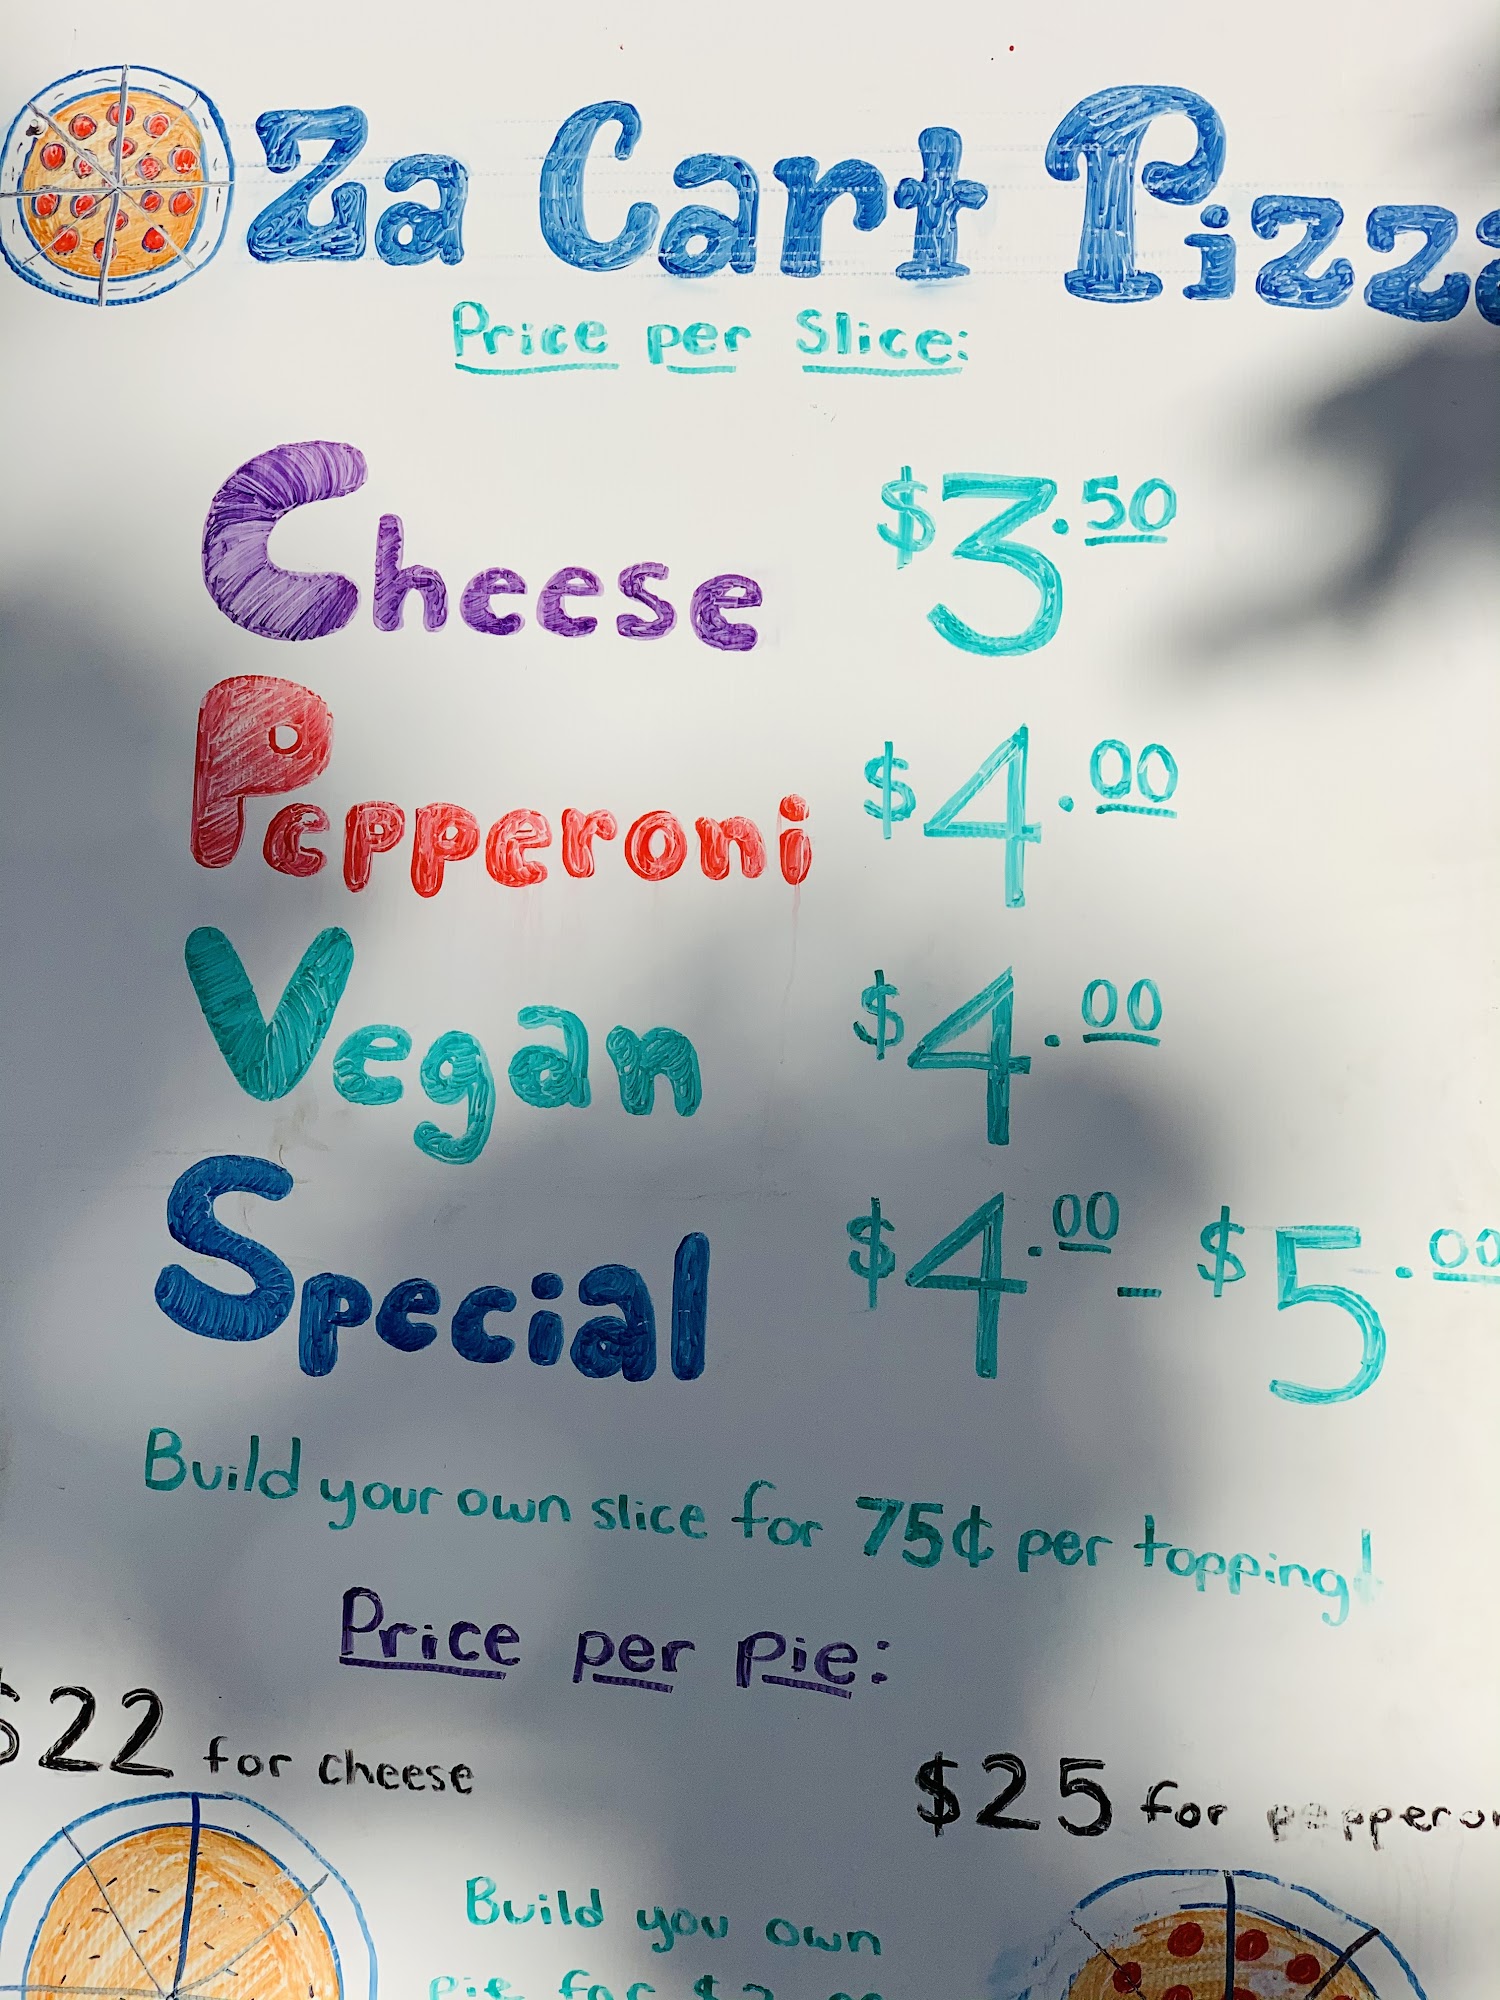 Za Cart Pizza
Price per Slice:
Cheese $3.50
Pepperoni $4.00
Vegan $4.00
Special $4.00 - $5.00
Build your own slice for 75¢ per topping!
Price per pie:
$22 for cheese
$25 for pepperon
Build you own
pie for $